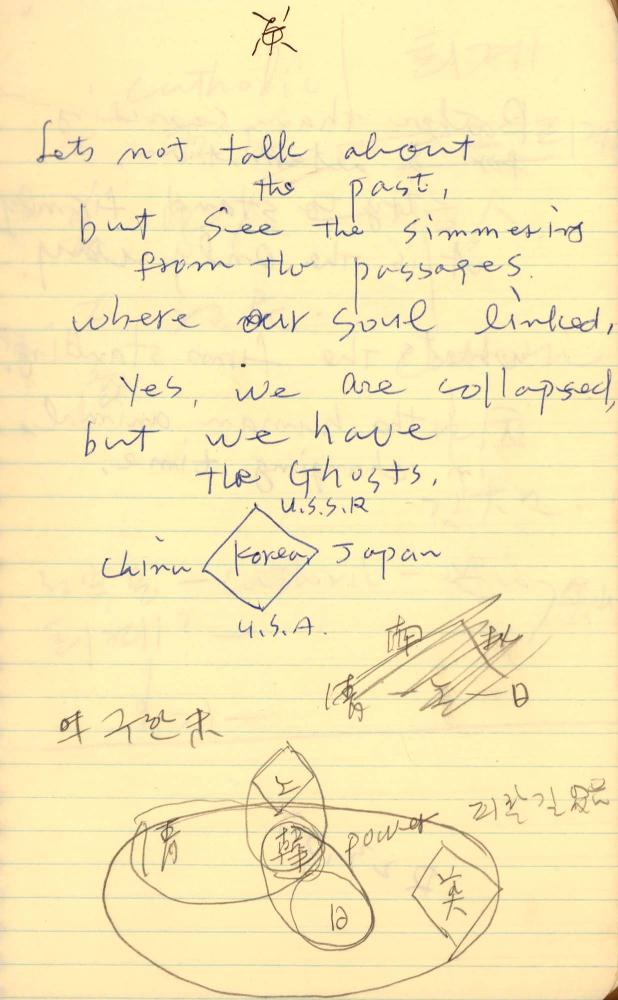 Lets not talk about
the past,
but see the simmering
from the passages.
where our soul linked,
Yes, we are collapsed,
but we have
the Ghosts.
U.S.S.R
China Korea Japan
U.S.A.
南 北
清 노 日
구한末
노
清 韓 power 피할길
美
日